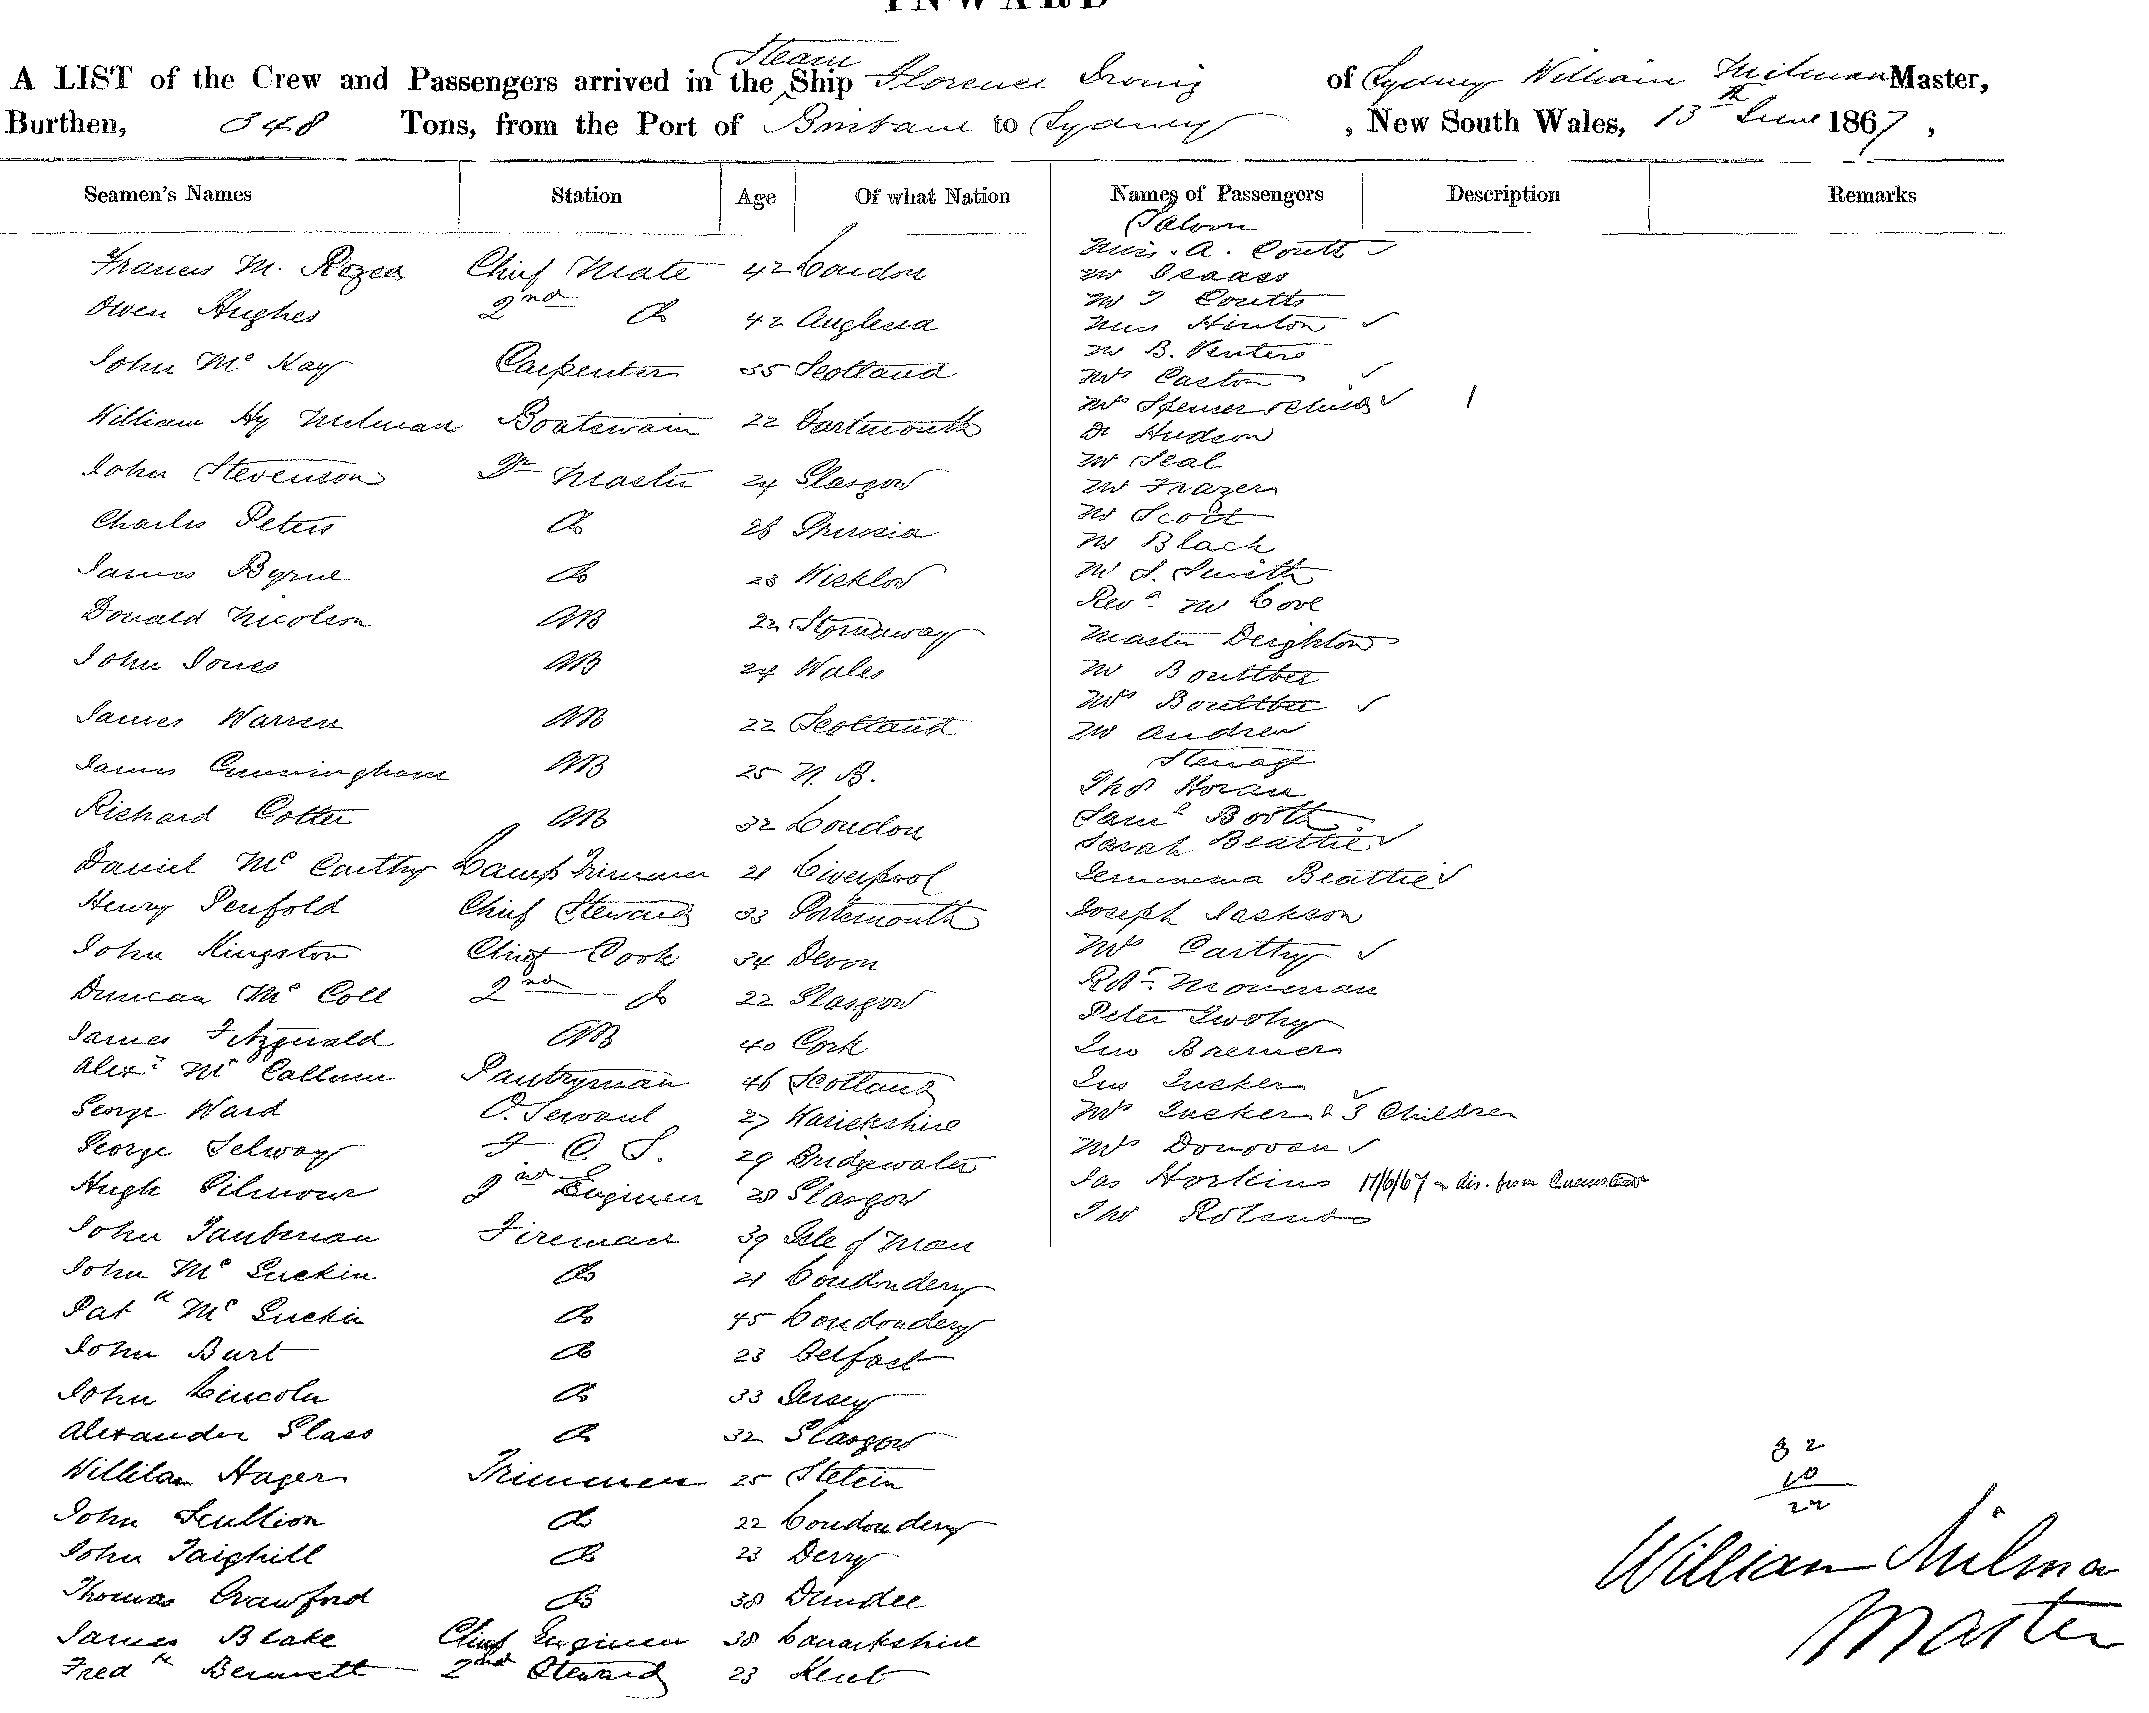 INWARD
A LIST of the Crew and Passengers arrived in the Steam Ship Florence Irving of Sydney William Milman Master,
Burthen, 348 Tons, from the Port of Brisbane to Sydney, New South Wales, 13th June 1867,
Seamen's Names Station Age Of what Nation Names of Passengers Description Remarks
Francis M. Chief Mate 42 London
Owen Hughes 2nd Do 42 Anglesea
John Mc Kay Carpenter 35 Scotland
William Hy Milman Boatswain 22 Dartmouth
John Stevenson Qr Master 24 Glasgow
Charles Peters Do 28 Prussia
James Byrne Do 23 Wicklow
Donald Nicolson AB 22 Stornaway
John Jones AB 24 Wales
James Warren AB 22 Scotland
James Cunningham AB 25 N.B.
Richard Cotter AB 32 London
Daniel Mc Carthy Lamp Trimmer 21 Liverpool
Henry Penfold Chief Steward 33 Portsmouth
John Kingston Chief Cook 34 Devon
Duncan Mc Coll 2nd do 22 Glasgow
James Fitzgerald AB 40 Cork
Alexr Mc Callum Pantryman 46 Scotland
George Ward O. Servant 27 Warickshire
George Selway F C S. 29 Bridgewater
Hugh Gilmour Engineer 28 Glasgow
John Taubman Fireman 39 Isle of Man
John Mc Guckin Do 21 Londondery
Patk Mc Guckin Do 45 Londondery
John Burt Do 23 Belfast
John Lincoln Do 33 Jersey
Alexander Glass Do 32 Glasgow
Hager Trimmer 25 Stetein
John Scullion do 22 Londondery
John Taighill Do 23 Derry
Thomas Crawford Do 38 Dundee
James Blake Chief Engineer 38 Lanarkshire
Fredk Bennett 2nd Steward 23 Kent
Saloon
Miss A. Coutts
Mr Isaacs
Mr J Coutts
Miss Hinton
Mr B. Venters
Mrs Caston
Mrs Spencer & Child 1
Dr Hudson
Mr Seal
Mr Frazer
Mr Scott
Mr Black
Mr S. Smith
Revd Mr Love
Master Deighton
Mr Boultbee
Mrs Boultbee
Mr Andrew
Steerage
Thos Horan
Saml Booth
Sarah Beattie
Jemimma Beattie
Joseph Jackson
Mrs Carthy
Robt
Peter Twohy
Jno Bremer
Jas Tucker
Mrs Tucker & 3 Children
Mrs Donovan
Jas Horkins 17/6/67 dis. from
Thos Roland
32
10
22
William Milman
Master